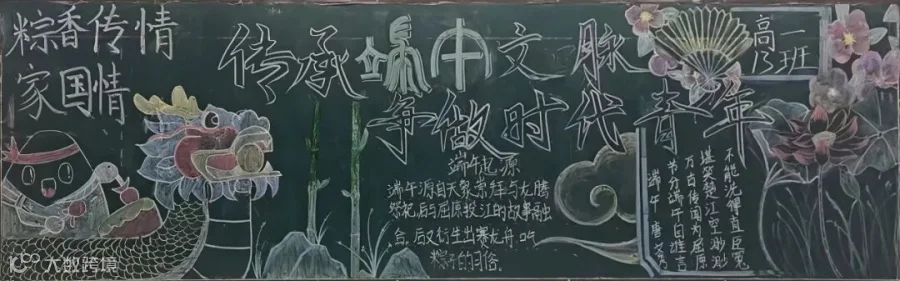 粽香传情
家国情
传承端午文脉
争做时代青年
高一
13班
端午起源
端午源自天象崇拜与龙腾
祭祀,后与屈原投江的故事融
合,后又衍生出赛龙舟、吃
粽子的习俗。
端午 唐 文秀
节分端午自谁言
万古传闻为屈原
堪笑楚江空渺渺
不能洗得直臣冤
大数跨境